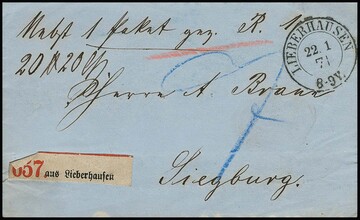 Nebst 1 Paket gez. R. 1
LIEBERHAUSEN
22 1
8-9V.
20 20
Herrn A. Braun
657 aus Lieberhausen
Siegburg.